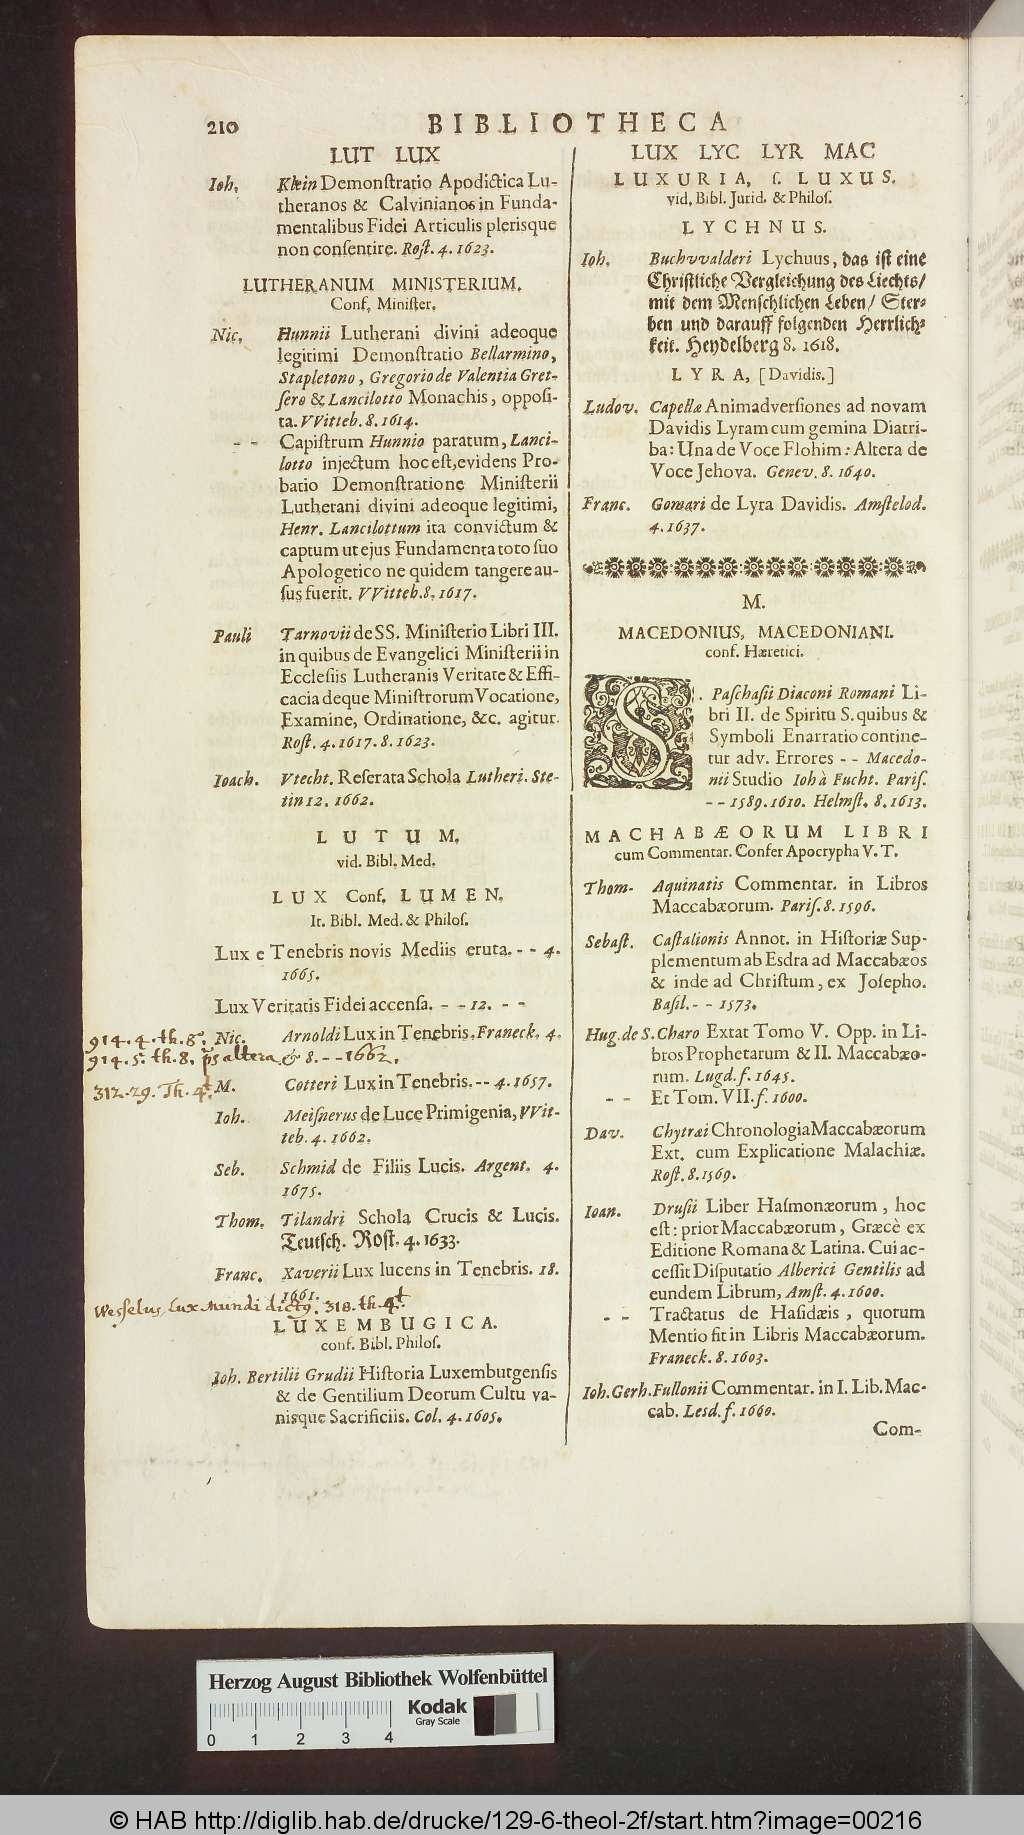 210
BIBLIOTHECA
LUT LUX
Ioh. Klein Demonſtratio Apodictica Lu-
theranos & Calvinianos in Funda-
mentalibus Fidei Articulis plerisque
non conſentire. Roſt. 4. 1623.
LUTHERANUM MINISTERIUM.
Conf. Miniſter.
Nic. Hunnii Lutherani divini adeoque
legitimi Demonſtratio Bellarmino,
Stapletono, Gregorio de Valentia Gret-
ſero & Lancilotto Monachis, oppoſi-
ta. VVitteb. 8. 1614.
-- Capiſtrum Hunnio paratum, Lanci-
lotto injectum hoc eſt, evidens Pro-
batio Demonſtratione Miniſterii
Lutherani divini adeoque legitimi,
Henr. Lancilottum ita convictum &
captum ut ejus Fundamenta toto ſuo
Apologetico ne quidem tangere au-
ſus fuerit. VVitteb. 8. 1617.
Pauli Tarnovii de SS. Miniſterio Libri III.
in quibus de Evangelici Miniſterii in
Eccleſiis Lutheranis Veritate & Effi-
cacia deque Miniſtrorum Vocatione,
Examine, Ordinatione, &c. agitur.
Roſt. 4. 1617. 8. 1623.
Ioach. Vtecht. Reſerata Schola Lutheri. Ste-
tin 12. 1662.
LUTUM.
vid. Bibl. Med.
LUX Conf. LUMEN.
It. Bibl. Med. & Philoſ.
Lux e Tenebris novis Mediis eruta. -- 4.
1665.
Lux Veritatis Fidei accenſa. -- 12. --
914. 4. th. 8º. Nic. Arnoldi Lux in Tenebris. Franeck. 4.
914. 5. th. 8. ps altera & 8. -- 1662.
312. 29. Th. 4t M. Cotteri Lux in Tenebris. -- 4. 1657.
Ioh. Meiſnerus de Luce Primigenia, VVit-
teb. 4. 1662.
Seb. Schmid de Filiis Lucis. Argent. 4.
1675.
Thom. Tilandri Schola Crucis & Lucis.
Teutſch. Roſt. 4. 1633.
Franc. Xaverii Lux lucens in Tenebris. 18.
1661.
Weſſelus, Lux Mundi dictq. 318. th. 4t.
LUXEMBUGICA.
conf. Bibl. Philoſ.
Joh. Bertilii Grudii Hiſtoria Luxemburgenſis
& de Gentilium Deorum Cultu va-
nisque Sacrificiis. Col. 4. 1605.
LUX LYC LYR MAC
LUXURIA, ſ. LUXUS.
vid. Bibl. Jurid. & Philoſ.
LYCHNUS.
Ioh. Buchvvalderi Lychuus, das iſt eine
Chriſtliche Vergleichung des Liechts/
mit dem Menſchlichen Leben/ Ster-
ben und darauff folgenden Herrlich-
keit. Heydelberg 8. 1618.
LYRA, [Davidis.]
Ludov. Capellæ Animadverſiones ad novam
Davidis Lyram cum gemina Diatri-
ba: Una de Voce Flohim: Altera de
Voce Jehova. Genev. 8. 1640.
Franc. Gomari de Lyra Davidis. Amſtelod.
4. 1637.
M.
MACEDONIUS, MACEDONIANI.
conf. Hæretici.
S. Paſchaſii Diaconi Romani Li-
bri II. de Spiritu S. quibus &
Symboli Enarratio contine-
tur adv. Errores -- Macedo-
nii Studio Ioh à Fucht. Pariſ.
-- 1589. 1610. Helmſt. 8. 1613.
MACHABÆORUM LIBRI
cum Commentar. Confer Apocrypha V. T.
Thom- Aquinatis Commentar. in Libros
Maccabæorum. Pariſ. 8. 1596.
Sebaſt. Caſtalionis Annot. in Hiſtoriæ Sup-
plementum ab Esdra ad Maccabæos
& inde ad Chriſtum, ex Joſepho.
Baſil. -- 1573.
Hug. de S. Charo Extat Tomo V. Opp. in Li-
bros Prophetarum & II. Maccabæo-
rum. Lugd. f. 1645.
-- Et Tom. VII. f. 1600.
Dav. Chytræi Chronologia Maccabæorum
Ext. cum Explicatione Malachiæ.
Roſt. 8. 1569.
Ioan. Druſii Liber Haſmonæorum, hoc
eſt: prior Maccabæorum, Græcè ex
Editione Romana & Latina. Cui ac-
ceſſit Diſputatio Alberici Gentilis ad
eundem Librum, Amſt. 4. 1600.
-- Tractatus de Haſidæis, quorum
Mentio fit in Libris Maccabæorum.
Franeck. 8. 1603.
Ioh. Gerh. Fullonii Commentar. in I. Lib. Mac-
cab. Lesd. f. 1660.
Com-
Herzog August Bibliothek Wolfenbüttel
Kodak
Gray Scale
0 1 2 3 4
© HAB http://diglib.hab.de/drucke/129-6-theol-2f/start.htm?image=00216